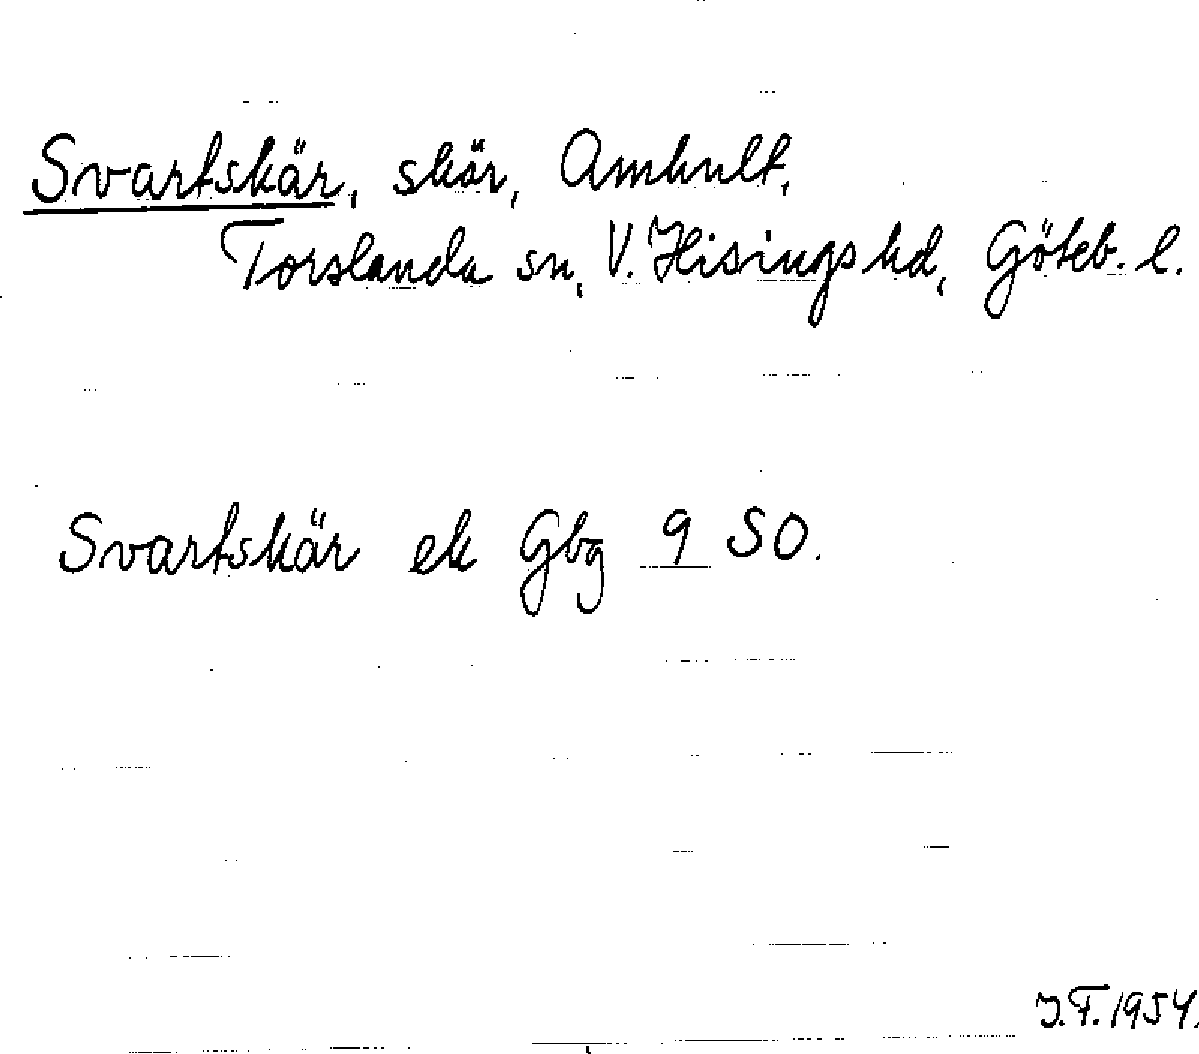 Svartskär, skär, Amhult,
Torslanda sn, V. Hisings hd, Göteb. l.
Svartskär ek Gbg 9 SO.
J.F. 1954.